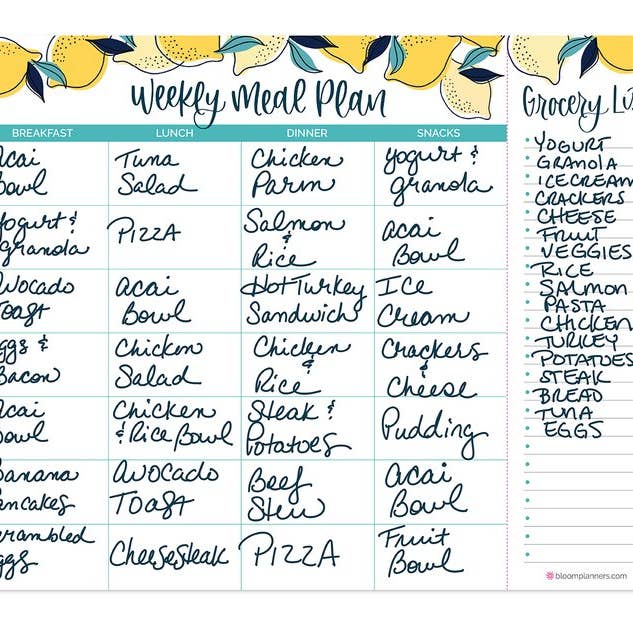 Weekly Meal Plan
Grocery Li
BREAKFAST LUNCH DINNER SNACKS
Acai Bowl
Tuna Salad
Chicken Parm
yogurt & granola
Yogurt & Granola
PIZZA
Salmon & Rice
acai Bowl
Avocado Toast
Acai Bowl
Hot Turkey Sandwich
Ice Cream
Eggs & Bacon
Chicken Salad
Chicken & Rice
Crackers & Cheese
Acai Bowl
Chicken & Rice Bowl
Steak & Potatoes
Pudding
Banana Pancakes
Avocado Toast
Beef Stew
Acai Bowl
Scrambled Eggs
Cheesesteak
PIZZA
Fruit Bowl
YOGURT
GRANOLA
ICE CREAM
CRACKERS
CHEESE
FRUIT
VEGGIES
RICE
SALMON
PASTA
CHICKEN
TURKEY
POTATOES
STEAK
BREAD
TUNA
EGGS
bloomplanners.com